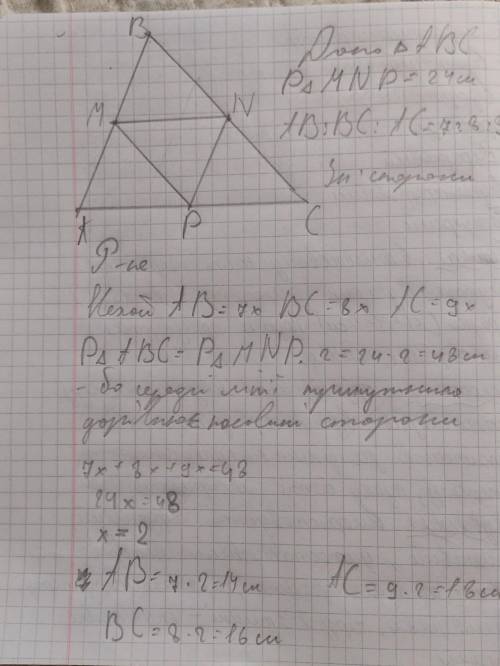 B
Дано △ ABC
P△ MNP = 24см
M
N
AB:BC:AC=7:8:9
Зн: сторони
A
P
C
Р-ня
Нехай AB=7x BC=8x AC=9x
P△ ABC = P△ MNP · 2 = 24 · 2 = 48см
- бо середні лінії трикутника
дорівнює половині сторони
7x+8x+9x=48
24x=48
x=2
AB=7·2=14см AC=9·2=18см
BC=8·2=16см